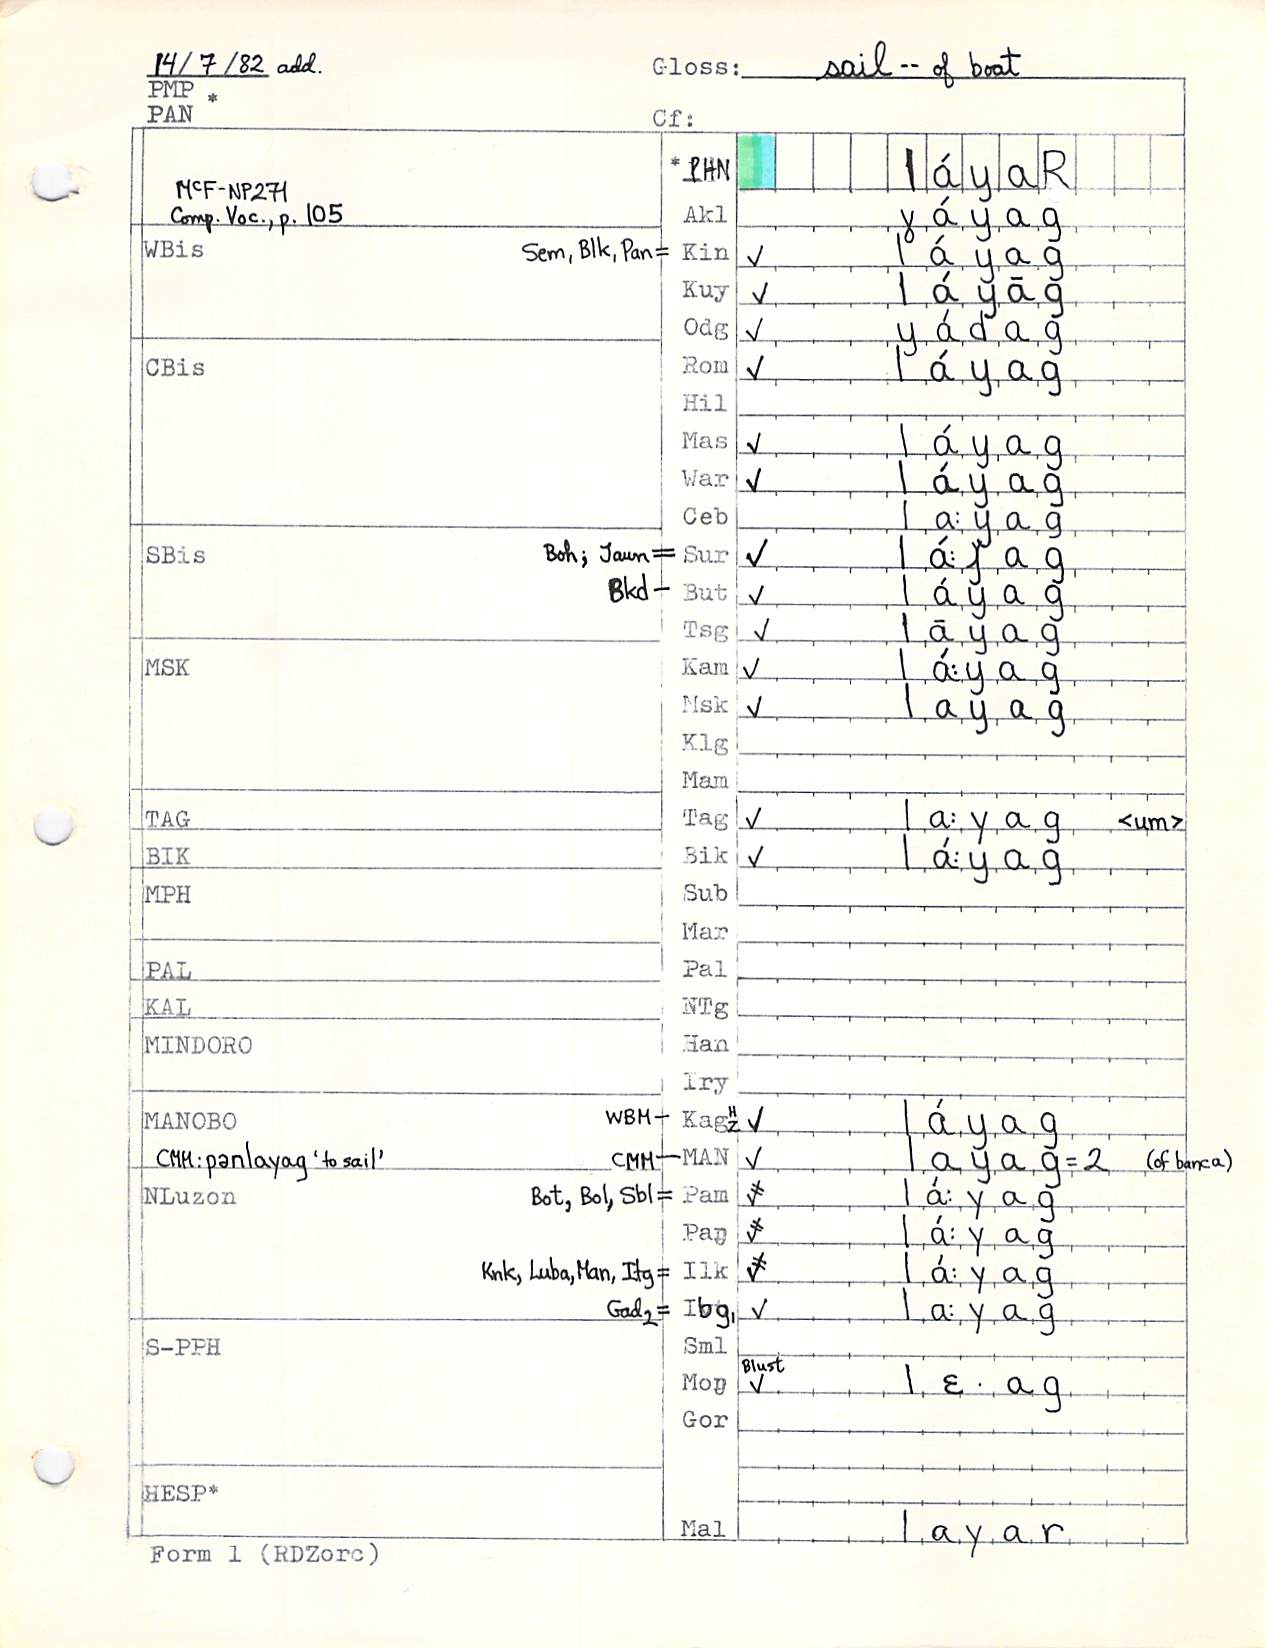 14/7/82 add. Gloss: sail -- of boat
PMP *
PAN Cf:
* PHN láyaR
McF-NP271
Comp. Voc., p. 105
Akl ɣáyag
WBis Sem, Blk, Pan = Kin ✓ láyag
Kuy ✓ láyāg
Odg ✓ yádag
CBis Rom ✓ láyag
Hil
Mas ✓ láyag
War ✓ láyag
Ceb la:yag
SBis Boh; Jaun = Sur ✓ lá:ʃag
Bkd — But ✓ láyag
Tsg ✓ lāyag
MSK Kam ✓ lá:yag
Msk ✓ layag
Klg
Mam
TAG Tag ✓ la:yag <um>
BIK Bik ✓ lá:yag
MPH Sub
Mar
PAL Pal
KAL NTg
MINDORO Han
Iry
MANOBO WBM — Kag H Z ✓ láyag
CMM: pənlayag 'to sail' CMM — MAN ✓ layag = 2 (of banca)
NLuzon Bot, Bol, Sbl = Pam lá:yag
Paŋ lá:yag
Knk, Luba, Man, Itg = Ilk lá:yag
Gad2 = Ibg1 ✓ la:yag
S-PPH Sml
Blust
Moŋ ✓ lɛ·ag
Gor
HESP*
Mal layar
Form 1 (RDZorc)